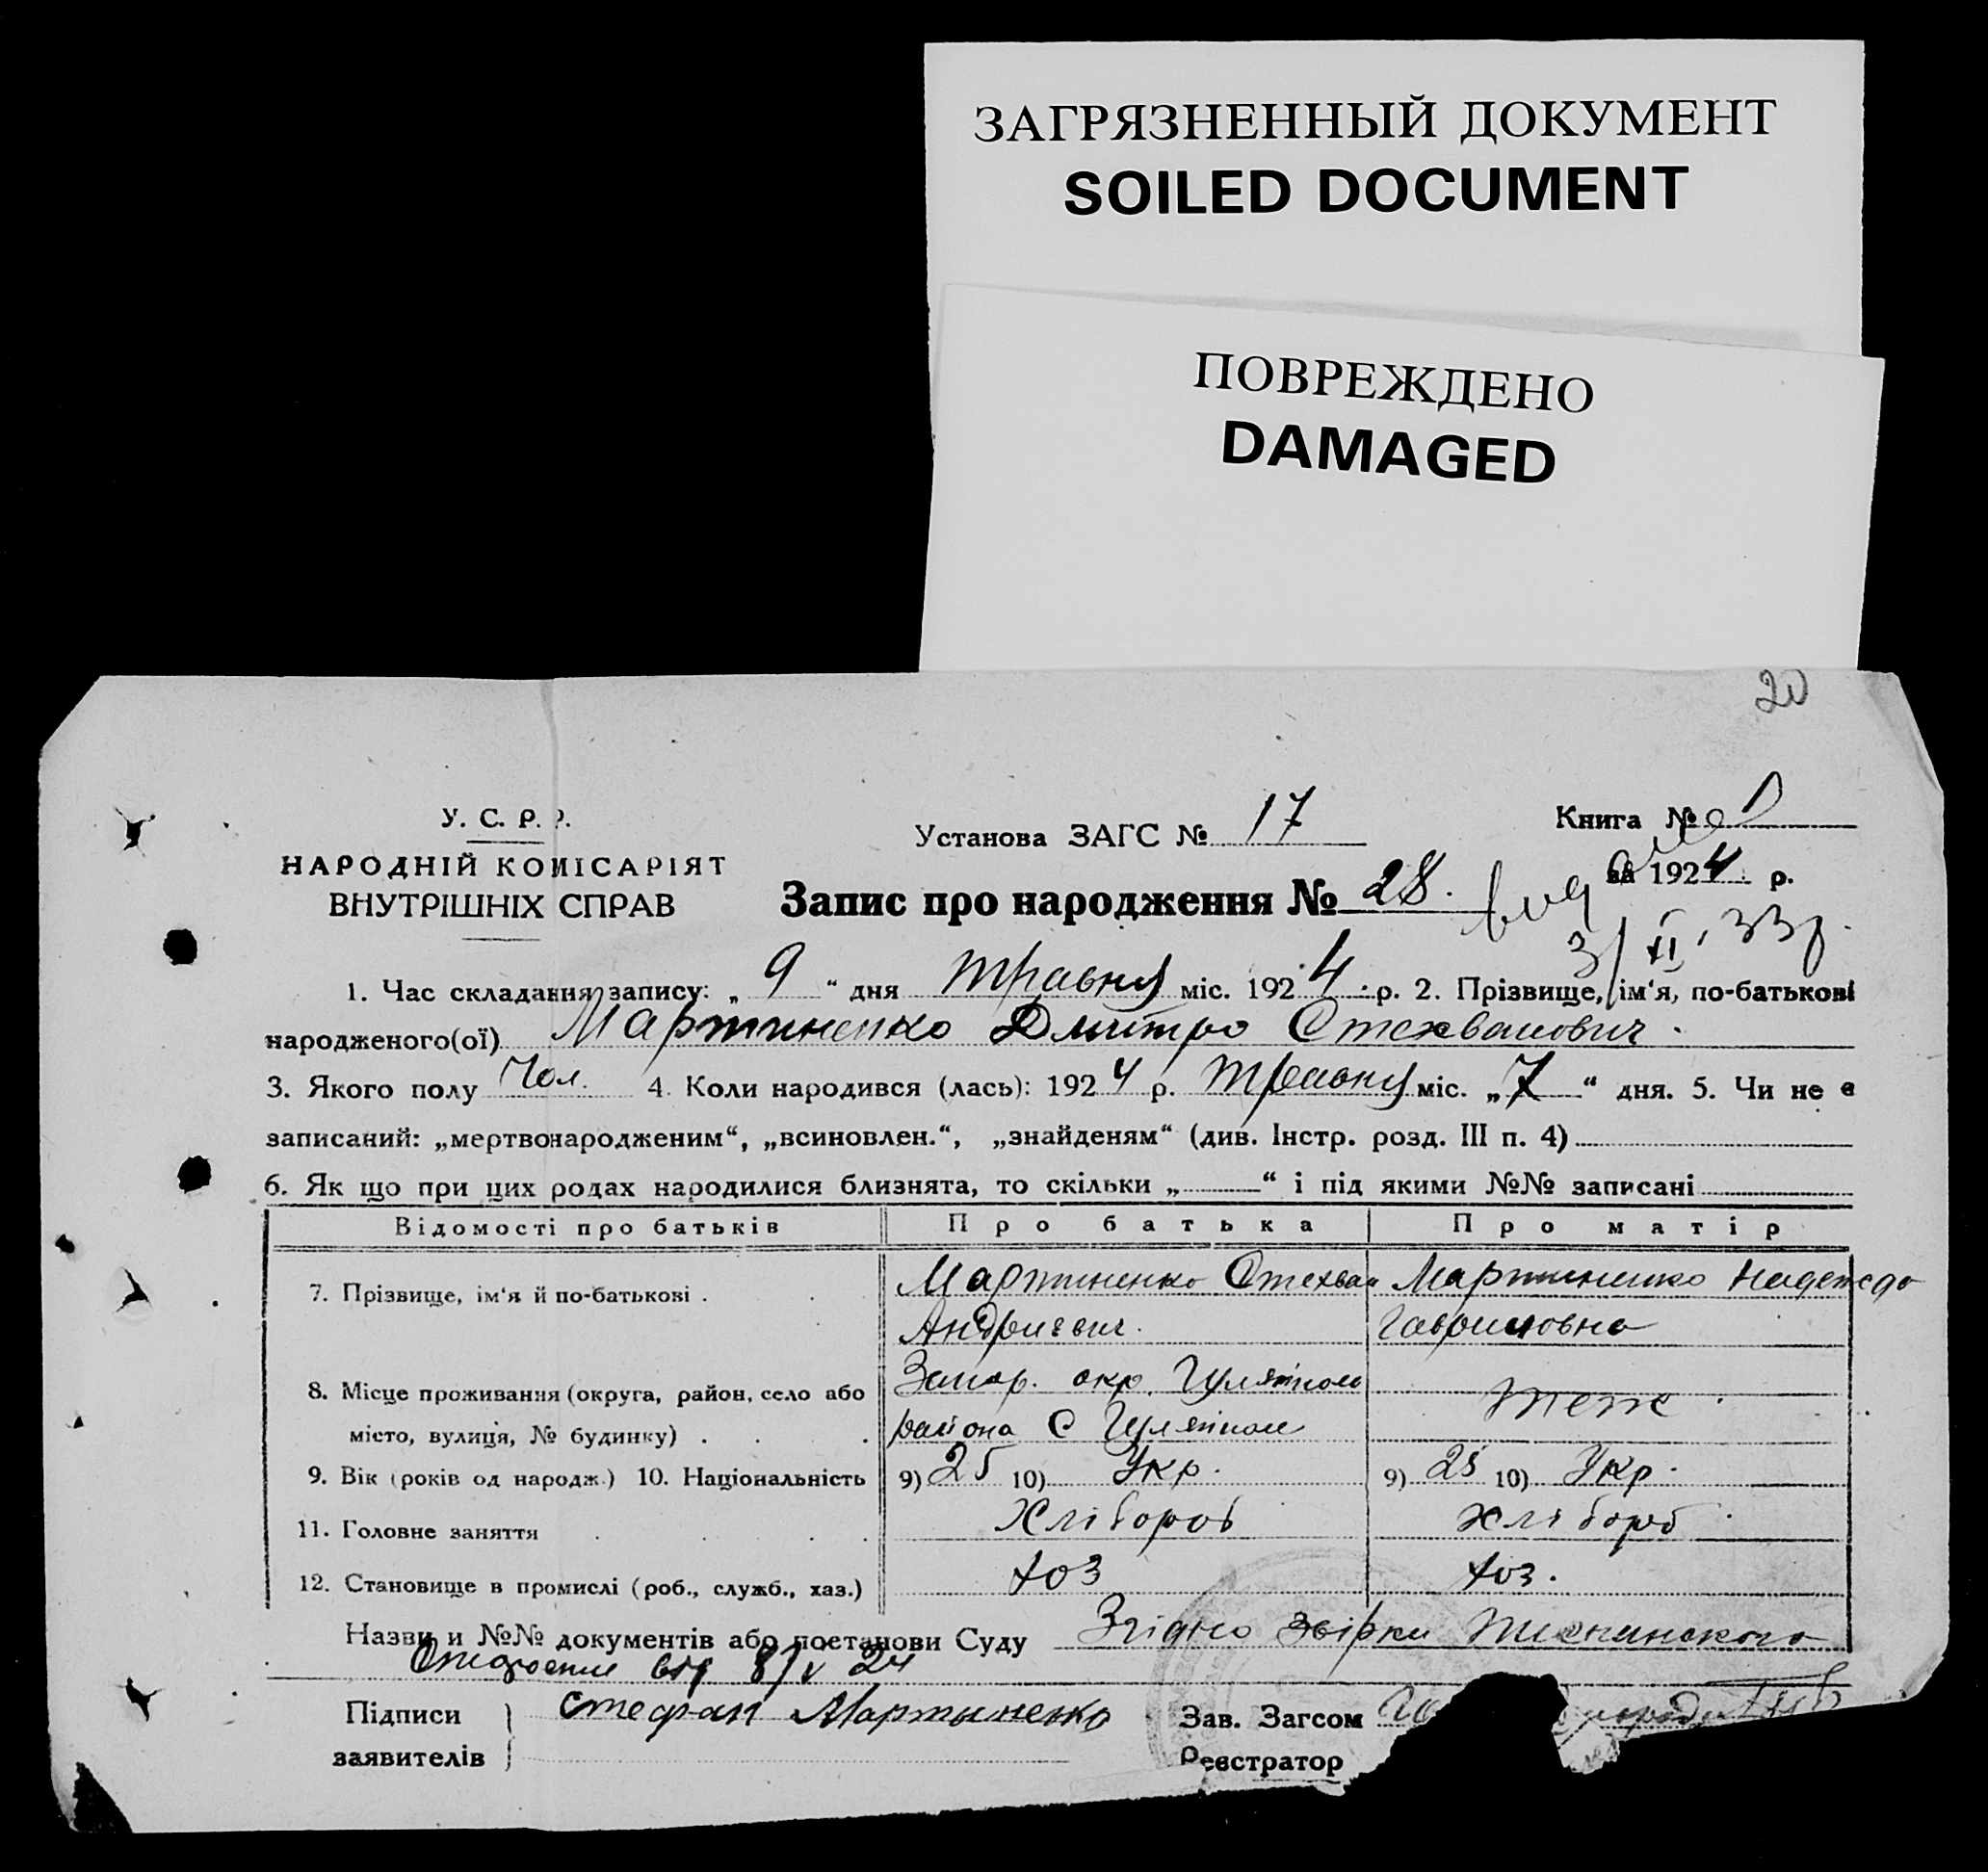 ЗАГРЯЗНЕННЫЙ ДОКУМЕНТ
SOILED DOCUMENT
ПОВРЕЖДЕНО
DAMAGED
20
У. С. Р. Р.
НАРОДНІЙ КОМІСАРІЯТ
ВНУТРІШНІХ СПРАВ
Установа ЗАГС № 17
Книга № 1
за 1924 р.
Запис про народження № 28.
вид
3/II, 33р.
1. Час складання запису: „ 9 “ дня травня міс. 1924 р. 2. Прізвище, ім‘я, по-батькові
народженого(ої) Мартиненко Дмитро Стехванович.
3. Якого полу Чол. 4. Коли народився (лась): 1924 р. травня міс. „7“ дня. 5. Чи не є
записаний: „мертвонародженим“, „всиновлен.“, „знайденям“ (див. Інстр. розд. III п. 4)
6. Як що при цих родах народилися близнята, то скільки „ “ і під якими №№ записані
Відомості про батьків Про батька Про матір
7. Прізвище, ім‘я й по-батькові . Мартиненко Стехван Мартиненко Надежда
Андриевич. Гавриловна
8. Місце проживання (округа, район, село або Запор. окр. Гуляйполь теж.
місто, вулиця, № будинку) . района С Гуляйполе
9. Вік (років од народж.) 10. Національність 9) 25 10) Укр. 9) 25 10) Укр.
11. Головне заняття Хлібороб хлібороб
12. Становище в промислі (роб., служб., хаз.) хоз хоз.
Назви и №№ документів або постанови Суду Згідно звірки
вид 8/V 24
Підписи заявителів Стефан Мартыненко Зав. Загсом
Реєстратор